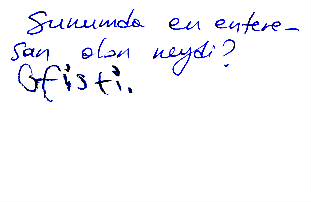 Sunumda en entere-
san olan neydi?
Gfisti.